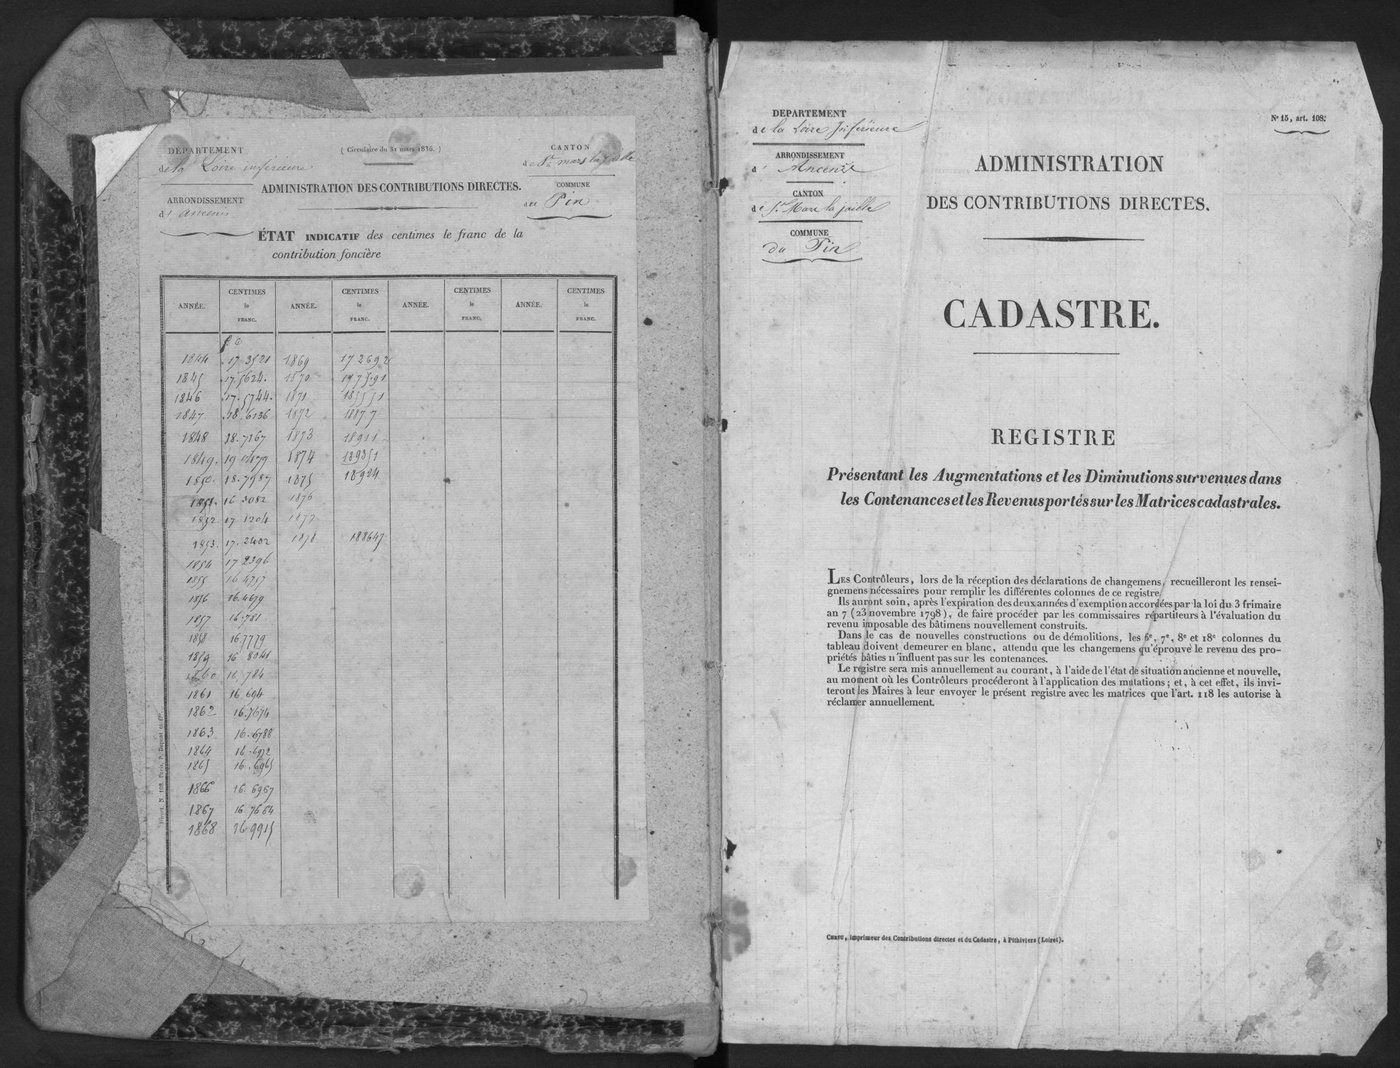 DÉPARTEMENT
de la Loire inférieure
ARRONDISSEMENT
d'ancenis
( Circulaire du 31 mars 1836. )
ADMINISTRATION DES CONTRIBUTIONS DIRECTES.
CANTON
de St mars la jaille
COMMUNE
du Pin
ÉTAT INDICATIF des centimes le franc de la
contribution foncière
ANNÉE. CENTIMES le FRANC. ANNÉE. CENTIMES le FRANC. ANNÉE. CENTIMES le FRANC. ANNÉE. CENTIMES le FRANC.
1844 17.3521 1869 17 2692
1845 17.5624. 1870
1846 17.5744. 1871
1847 18.6136 1872 18877
1848 18.7167 1873 18911
1849. 19 0479 1874 18951
1850. 18.7987 1875 18924
1851. 16 3082 1876
1852 17 1204 1877
1853. 17.2402 1878 188645
1854 17 2396
1855 16 4757
1856 16.4679
1857 16.781
1858 16.7779
1859 16 8041
1860 16 784
1861 16 694
1862 16.7674
1863 16.6788
1864 16.6972
1865 16.6965
1866 16.6967
1867 16.7664
1868 16.9915
DEPARTEMENT
de la Loire Inférieure
ARRONDISSEMENT
d'Ancenis
CANTON
de St Mars la jaille
COMMUNE
du Pin
No 15, art. 108.
ADMINISTRATION
DES CONTRIBUTIONS DIRECTES.
CADASTRE.
REGISTRE
Présentant les Augmentations et les Diminutions survenues dans
les Contenances et les Revenus portés sur les Matrices cadastrales.
LES Contrôleurs, lors de la réception des déclarations de changemens, recueilleront les rensei-
gnemens nécessaires pour remplir les différentes colonnes de ce registre.
Ils auront soin, après l'expiration des deux années d'exemption accordées par la loi du 3 frimaire
an 7 (23 novembre 1798), de faire procéder par les commissaires répartiteurs à l'évaluation du
revenu imposable des bâtimens nouvellement construits.
Dans le cas de nouvelles constructions ou de démolitions, les 6e, 7e, 8e et 18e colonnes du
tableau doivent demeurer en blanc, attendu que les changemens qu'éprouve le revenu des pro-
priétés bâties n'influent pas sur les contenances.
Le registre sera mis annuellement au courant, à l'aide de l'état de situation ancienne et nouvelle,
au moment où les Contrôleurs procéderont à l'application des mutations; et, à cet effet, ils invi-
teront les Maires à leur envoyer le présent registre avec les matrices que l'art. 118 les autorise à
réclamer annuellement.
imprimeur des Contributions directes et du Cadastre, à Pithiviers (Loiret).